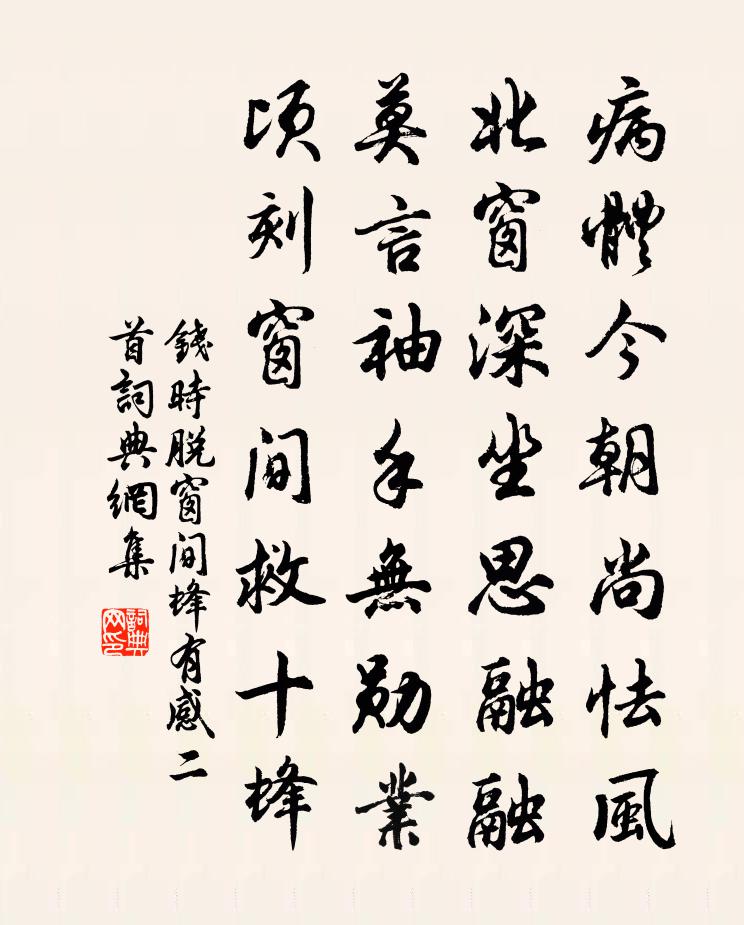 病體今朝尚怯風
北窗深坐思融融
莫言袖手無勛業
頃刻窗間救十蜂
錢時脫窗間蜂有感二
首詞典網集
詞典
网印